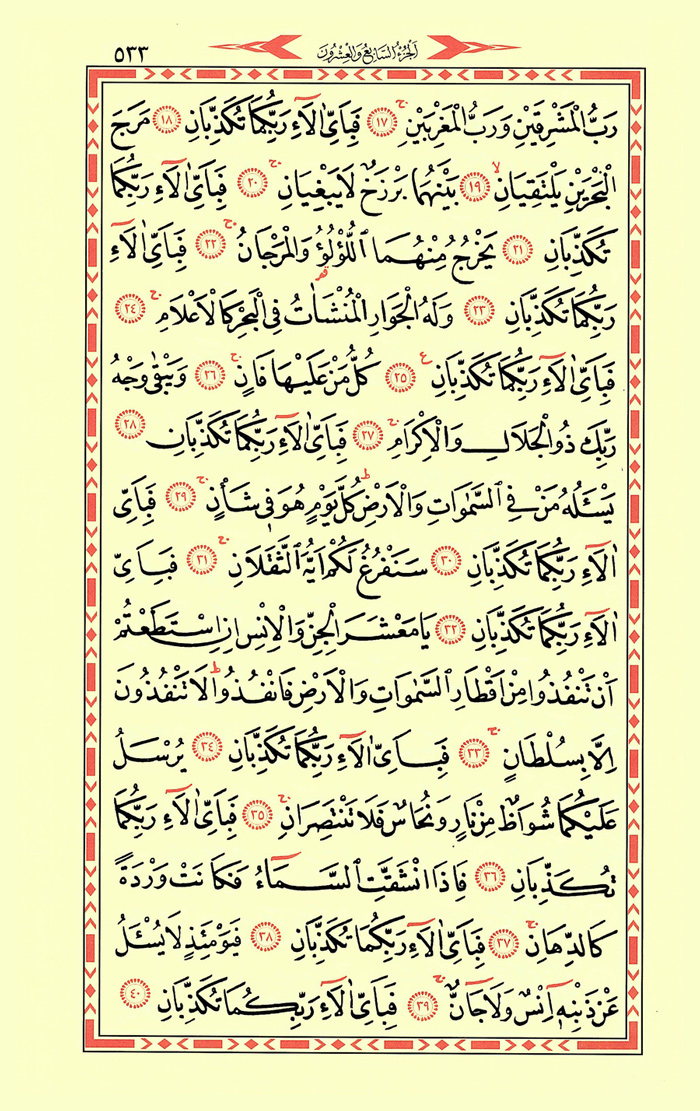 اَلْجُزْءُ السَّابِعُ وَالْعِشْرُونَ ٥٣٣
رَبُّ الْمَشْرِقَيْنِ وَرَبُّ الْمَغْرِبَيْنِۚ ﴿١٧﴾ فَبِاَيِّ اٰلَٓاءِ رَبِّكُمَا تُكَذِّبَانِ ﴿١٨﴾ مَرَجَ
الْبَحْرَيْنِ يَلْتَقِيَانِۙ ﴿١٩﴾ بَيْنَهُمَا بَرْزَخٌ لَا يَبْغِيَانِۚ ﴿٢٠﴾ فَبِاَيِّ اٰلَٓاءِ رَبِّكُمَا
تُكَذِّبَانِ ﴿٢١﴾ يَخْرُجُ مِنْهُمَا اللُّؤْلُؤُ وَالْمَرْجَانُۚ ﴿٢٢﴾ فَبِاَيِّ اٰلَٓاءِ
رَبِّكُمَا تُكَذِّبَانِ ﴿٢٣﴾ وَلَهُ الْجَوَارِ الْمُنْشَاٰتُ فِي الْبَحْرِ كَالْاَعْلَامِۚ ﴿٢٤﴾
فَبِاَيِّ اٰلَٓاءِ رَبِّكُمَا تُكَذِّبَانِ۟ ﴿٢٥﴾ كُلُّ مَنْ عَلَيْهَا فَانٍۚ ﴿٢٦﴾ وَيَبْقٰى وَجْهُ
رَبِّكَ ذُو الْجَلَالِ وَالْاِكْرَامِۚ ﴿٢٧﴾ فَبِاَيِّ اٰلَٓاءِ رَبِّكُمَا تُكَذِّبَانِ ﴿٢٨﴾
يَسْـَٔلُهُ مَنْ فِي السَّمٰوَاتِ وَالْاَرْضِۜ كُلَّ يَوْمٍ هُوَ فِي شَأْنٍۚ ﴿٢٩﴾ فَبِاَيِّ
اٰلَٓاءِ رَبِّكُمَا تُكَذِّبَانِ ﴿٣٠﴾ سَنَفْرُغُ لَكُمْ اَيُّهَ الثَّقَلَانِۚ ﴿٣١﴾ فَبِاَيِّ
اٰلَٓاءِ رَبِّكُمَا تُكَذِّبَانِ ﴿٣٢﴾ يَا مَعْشَرَ الْجِنِّ وَالْاِنْسِ اِنِ اسْتَطَعْتُمْ
اَنْ تَنْفُذُوا مِنْ اَقْطَارِ السَّمٰوَاتِ وَالْاَرْضِ فَانْفُذُواۜ لَا تَنْفُذُونَ
اِلَّا بِسُلْطَانٍۚ ﴿٣٣﴾ فَبِاَيِّ اٰلَٓاءِ رَبِّكُمَا تُكَذِّبَانِ ﴿٣٤﴾ يُرْسَلُ
عَلَيْكُمَا شُوَاظٌ مِنْ نَارٍ وَنُحَاسٌ فَلَا تَنْتَصِرَانِۚ ﴿٣٥﴾ فَبِاَيِّ اٰلَٓاءِ رَبِّكُمَا
تُكَذِّبَانِ ﴿٣٦﴾ فَاِذَا انْشَقَّتِ السَّمَٓاءُ فَكَانَتْ وَرْدَةً
كَالدِّهَانِۚ ﴿٣٧﴾ فَبِاَيِّ اٰلَٓاءِ رَبِّكُمَا تُكَذِّبَانِ ﴿٣٨﴾ فَيَوْمَئِذٍ لَا يُسْـَٔلُ
عَنْ ذَنْبِه۪ٓ اِنْسٌ وَلَا جَٓانٌّۚ ﴿٣٩﴾ فَبِاَيِّ اٰلَٓاءِ رَبِّكُمَا تُكَذِّبَانِ ﴿٤٠﴾